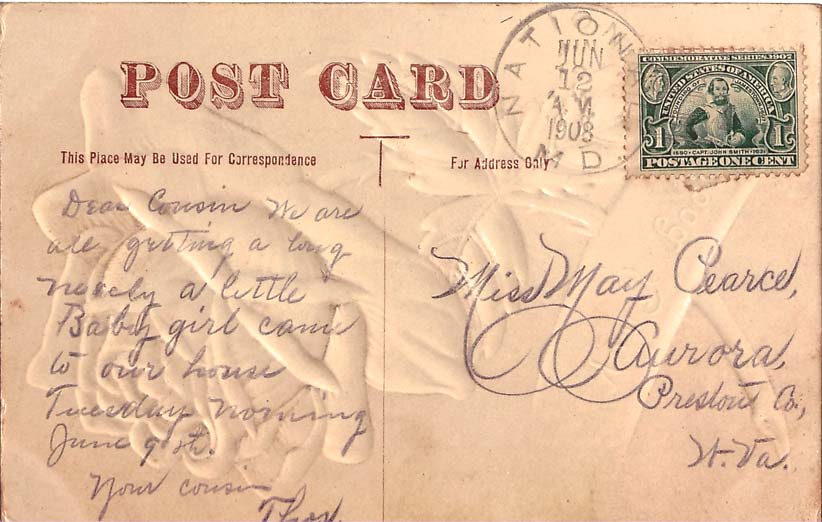 POST CARD
This Place May Be Used For Correspondence
For Address Only
NATIONAL
JUN
12
A.M.
1908
MD.
COMMEMORATIVE SERIES, 1907
UNITED STATES OF AMERICA
1 1
1580 · CAPT. JOHN SMITH · 1631
POSTAGE ONE CENT
Dear Cousin We are
all getting a long
nicely a little
Baby girl came
to our house
Tuesday morning
June 9th.
Your cousin
Miss May Pearce,
Aurora,
Preston Co.,
W. Va.